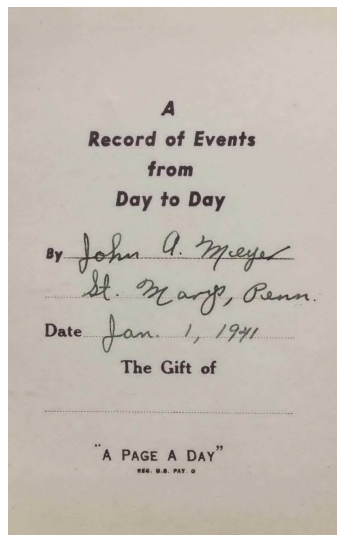 A
Record of Events
from
Day to Day
By John A. Meyer
St. Marys, Penn.
Date Jan. 1, 1941
The Gift of
"A PAGE A DAY"
REG. U.S. PAT. O